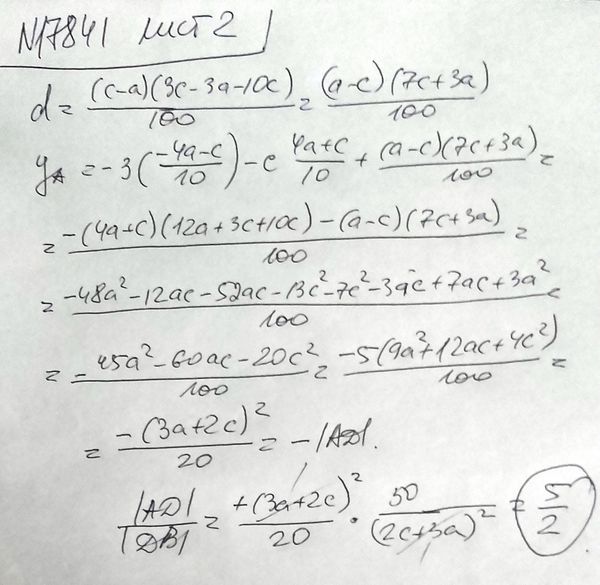 N17841 лист 2
d = (c-a)(3c-3a-10c)/100 = (a-c)(7c+3a)/100
y_A = -3((-4a-c)/10) - c (4a+c)/10 + (a-c)(7c+3a)/100 =
= (-(4a+c)(12a+3c+10c) - (a-c)(7c+3a))/100 =
= (-48a² - 12ac - 52ac - 13c² - 7c² - 3ac + 7ac + 3a²)/100 =
= (-45a² - 60ac - 20c²)/100 = (-5(9a² + 12ac + 4c²))/100 =
= (-(3a+2c)²)/20 = -|AD|.
|AD|/|DB| = (+(3a+2c)²)/20 · 50/(2c+3a)² = 5/2